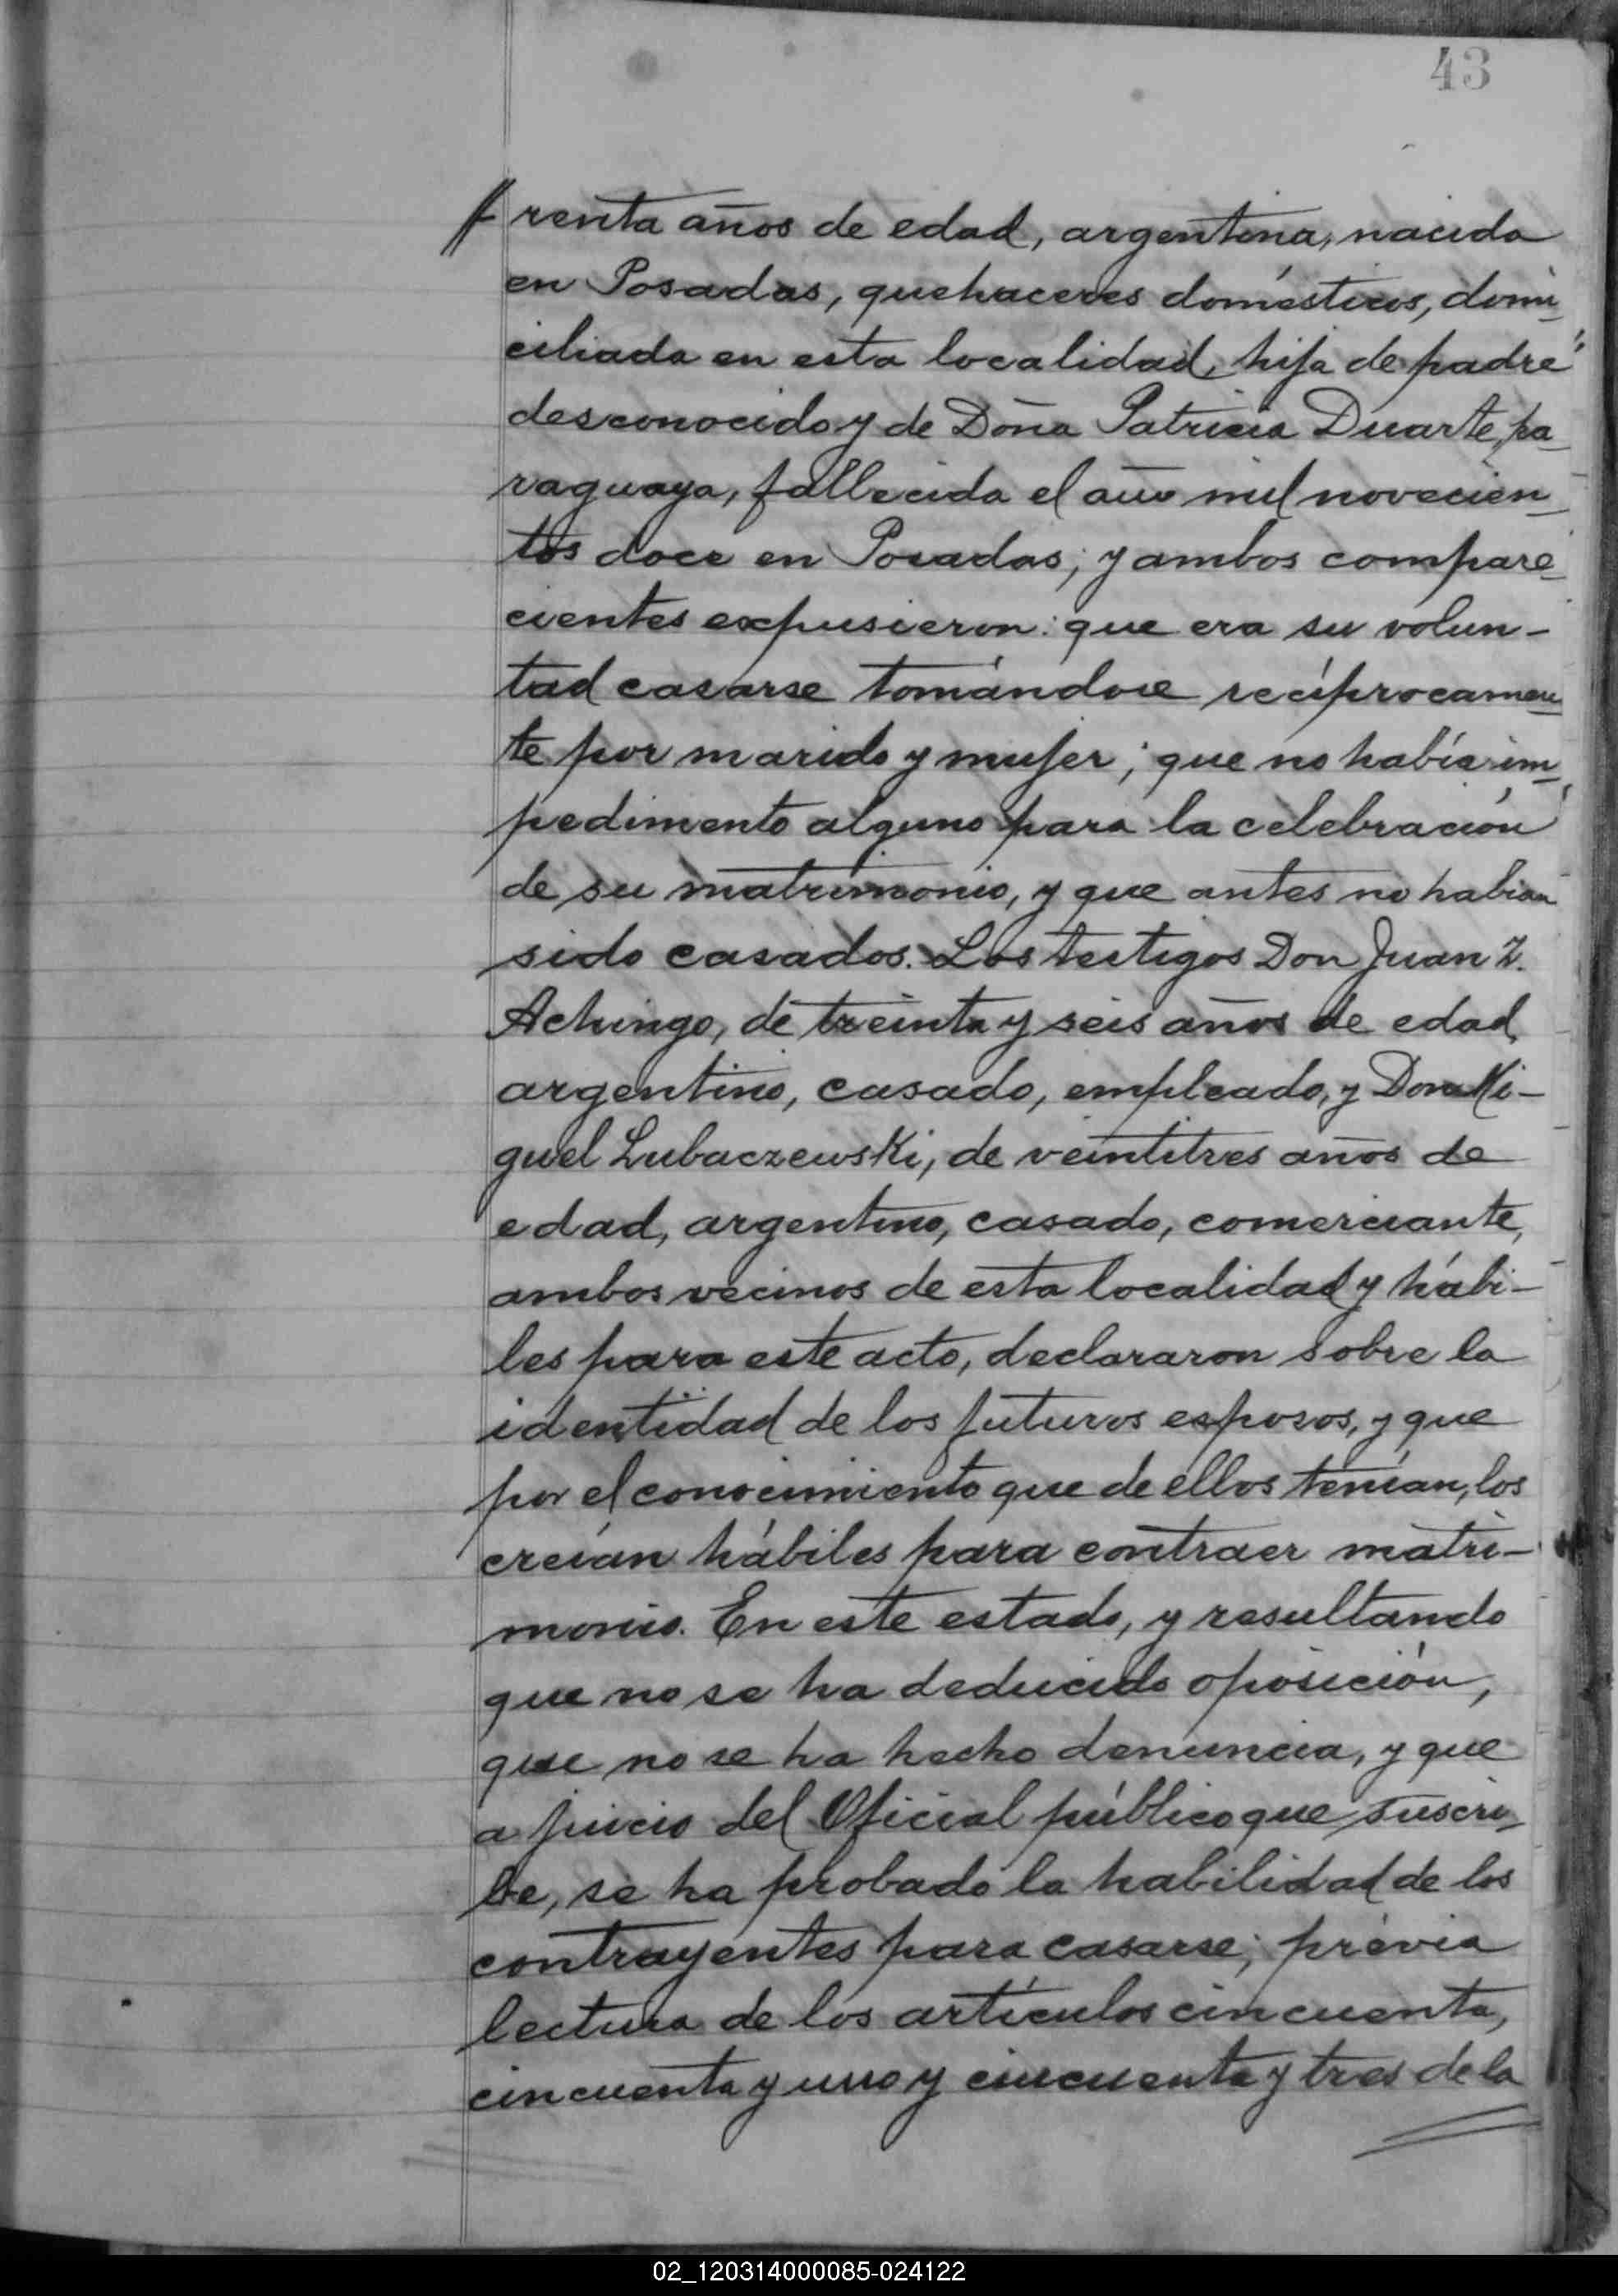 43
// renta años de edad, argentina, nacida
en Posadas, quehaceres domésticos, domi_
ciliada en esta localidad, hija de padre
desconocido y de Doña Patricia Duarte, pa_
raguaya, fallecida el año mil novecien_
tos doce en Posadas; y ambos compare_
cientes expusieron: que era su volun-
tad casarse tomándose recíprocamen_
te por marido y mujer; que no había im_
pedimento alguno para la celebración
de su matrimonio, y que antes no habian
sido casados. Los testigos Don Juan Z.
Achingo, de treinta y seis años de edad,
argentino, casado, empleado, y Don Mi-
guel Lubaczewski, de veintitres años de
edad, argentino, casado, comerciante,
ambos vecinos de esta localidad y hábi-
les para este acto, declararon sobre la
identidad de los futuros esposos, y que
por el conocimiento que de ellos tenían, los
creían hábiles para contraer matri-
monio. En este estado, y resultando
que no se ha deducido oposición,
que no se ha hecho denuncia, y que
a juicio del Oficial público que suscri_
be, se ha probado la habilidad de los
contrayentes para casarse; prévia
lectura de los artículos cincuenta,
cincuenta y uno y cincuenta y tres de la
02_120314000085-024122